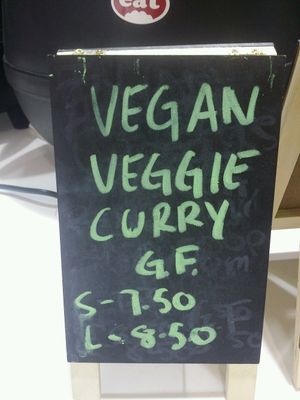 eat
VEGAN
VEGGIE
CURRY
G.F.
S-7.50
L-8.50